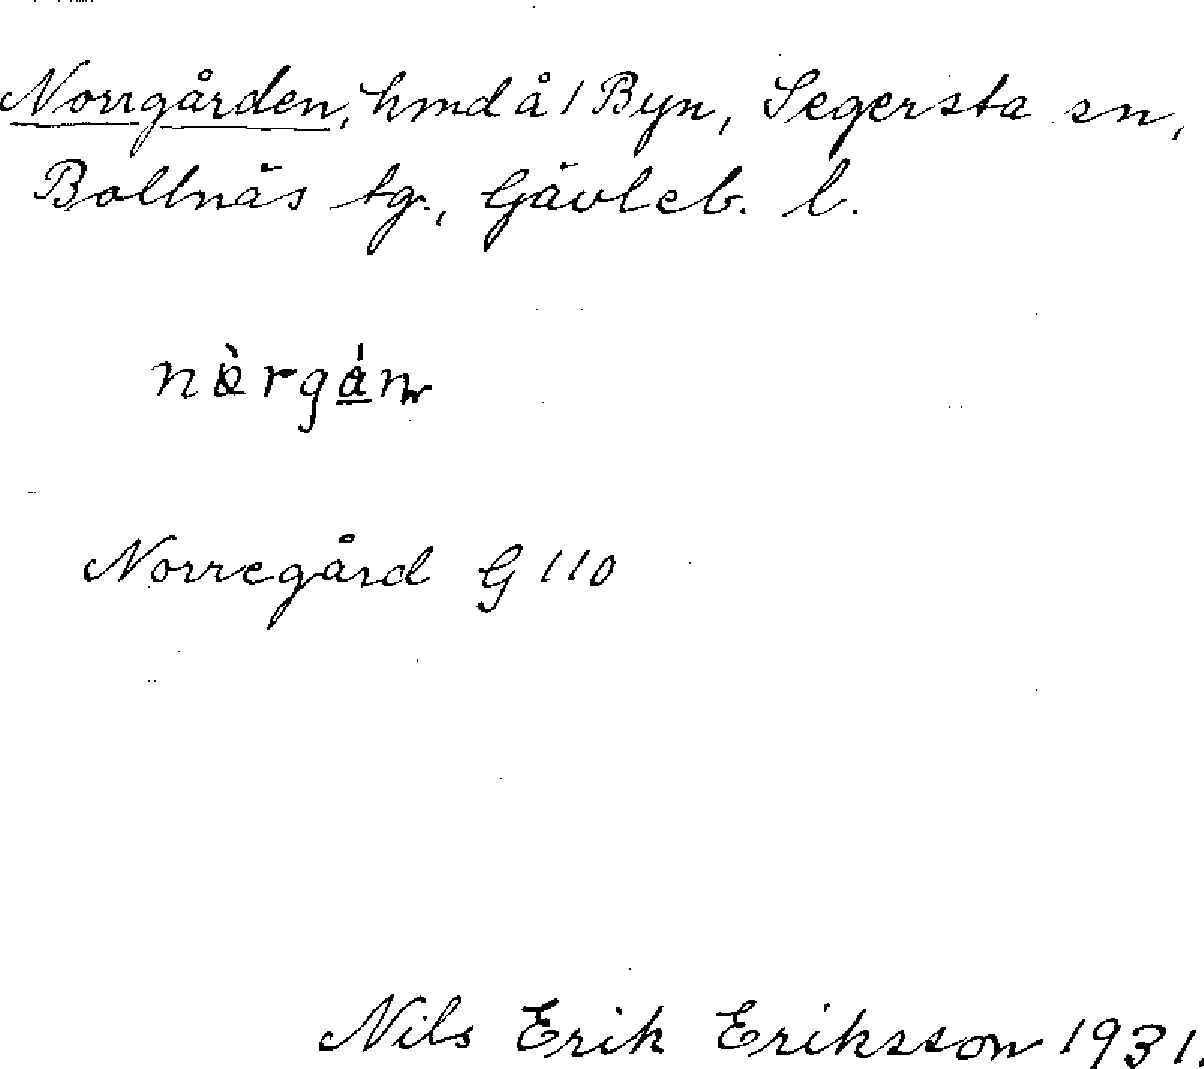 Norrgården, hmd å 1 Byn, Segersta sn,
Bollnäs tg., Gävleb. l.
Norregård G 110
Nils Erik Eriksson 1931.